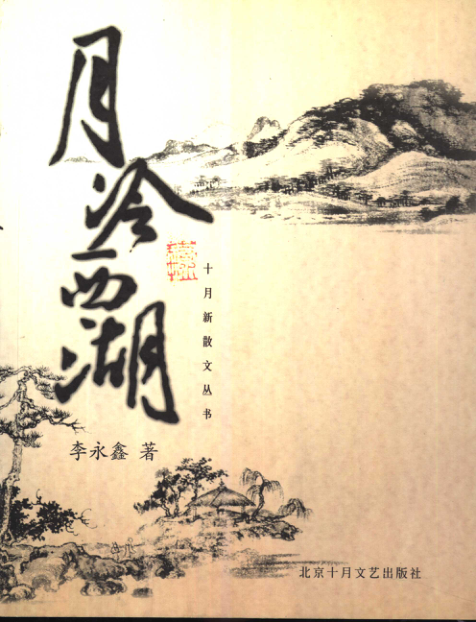 月冷西湖
十月新散文丛书
李永鑫 著
北京十月文艺出版社